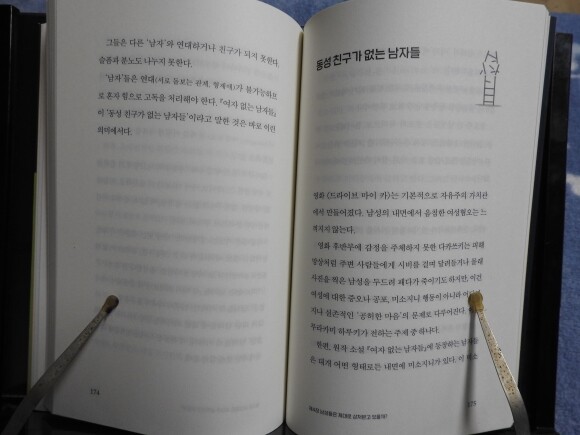 그들은 다른 '남자'와 연대하거나 친구가 되지 못한다.
슬픔과 분노도 나누지 못한다.
'남자'들은 연대(서로 돌보는 관계, 형제애)가 불가능하므
로 혼자 힘으로 고독을 처리해야 한다. 『여자 없는 남자들』
이 '동성 친구가 없는 남자들'이라고 말한 것은 바로 이런
의미에서다.
274
동성 친구가 없는 남자들
영화 〈드라이브 마이 카〉는 기본적으로 자유주의 가치관
에서 만들어졌다. 남성의 내면에서 음침한 여성혐오는 느
껴지지 않는다.
영화 후반부에 감정을 주체하지 못한 다카쓰키는 피해
망상처럼 주변 사람들에게 시비를 걸며 달려들거나 몰래
사진을 찍은 남성을 두드려 패다가 죽이기도 하지만, 이건
여성에 대한 증오나 공포, 미소지니 행동이 아니라
지나 실존적인 '공허한 마음'의 문제로 다루어진다.
무라카미 하루키가 전하는 주제 중 하나다.
한편, 원작 소설 『여자 없는 남자들』에 등장하는 남자들
은 대개 어떤 형태로든 내면에 미소지니가 있다. 이
275